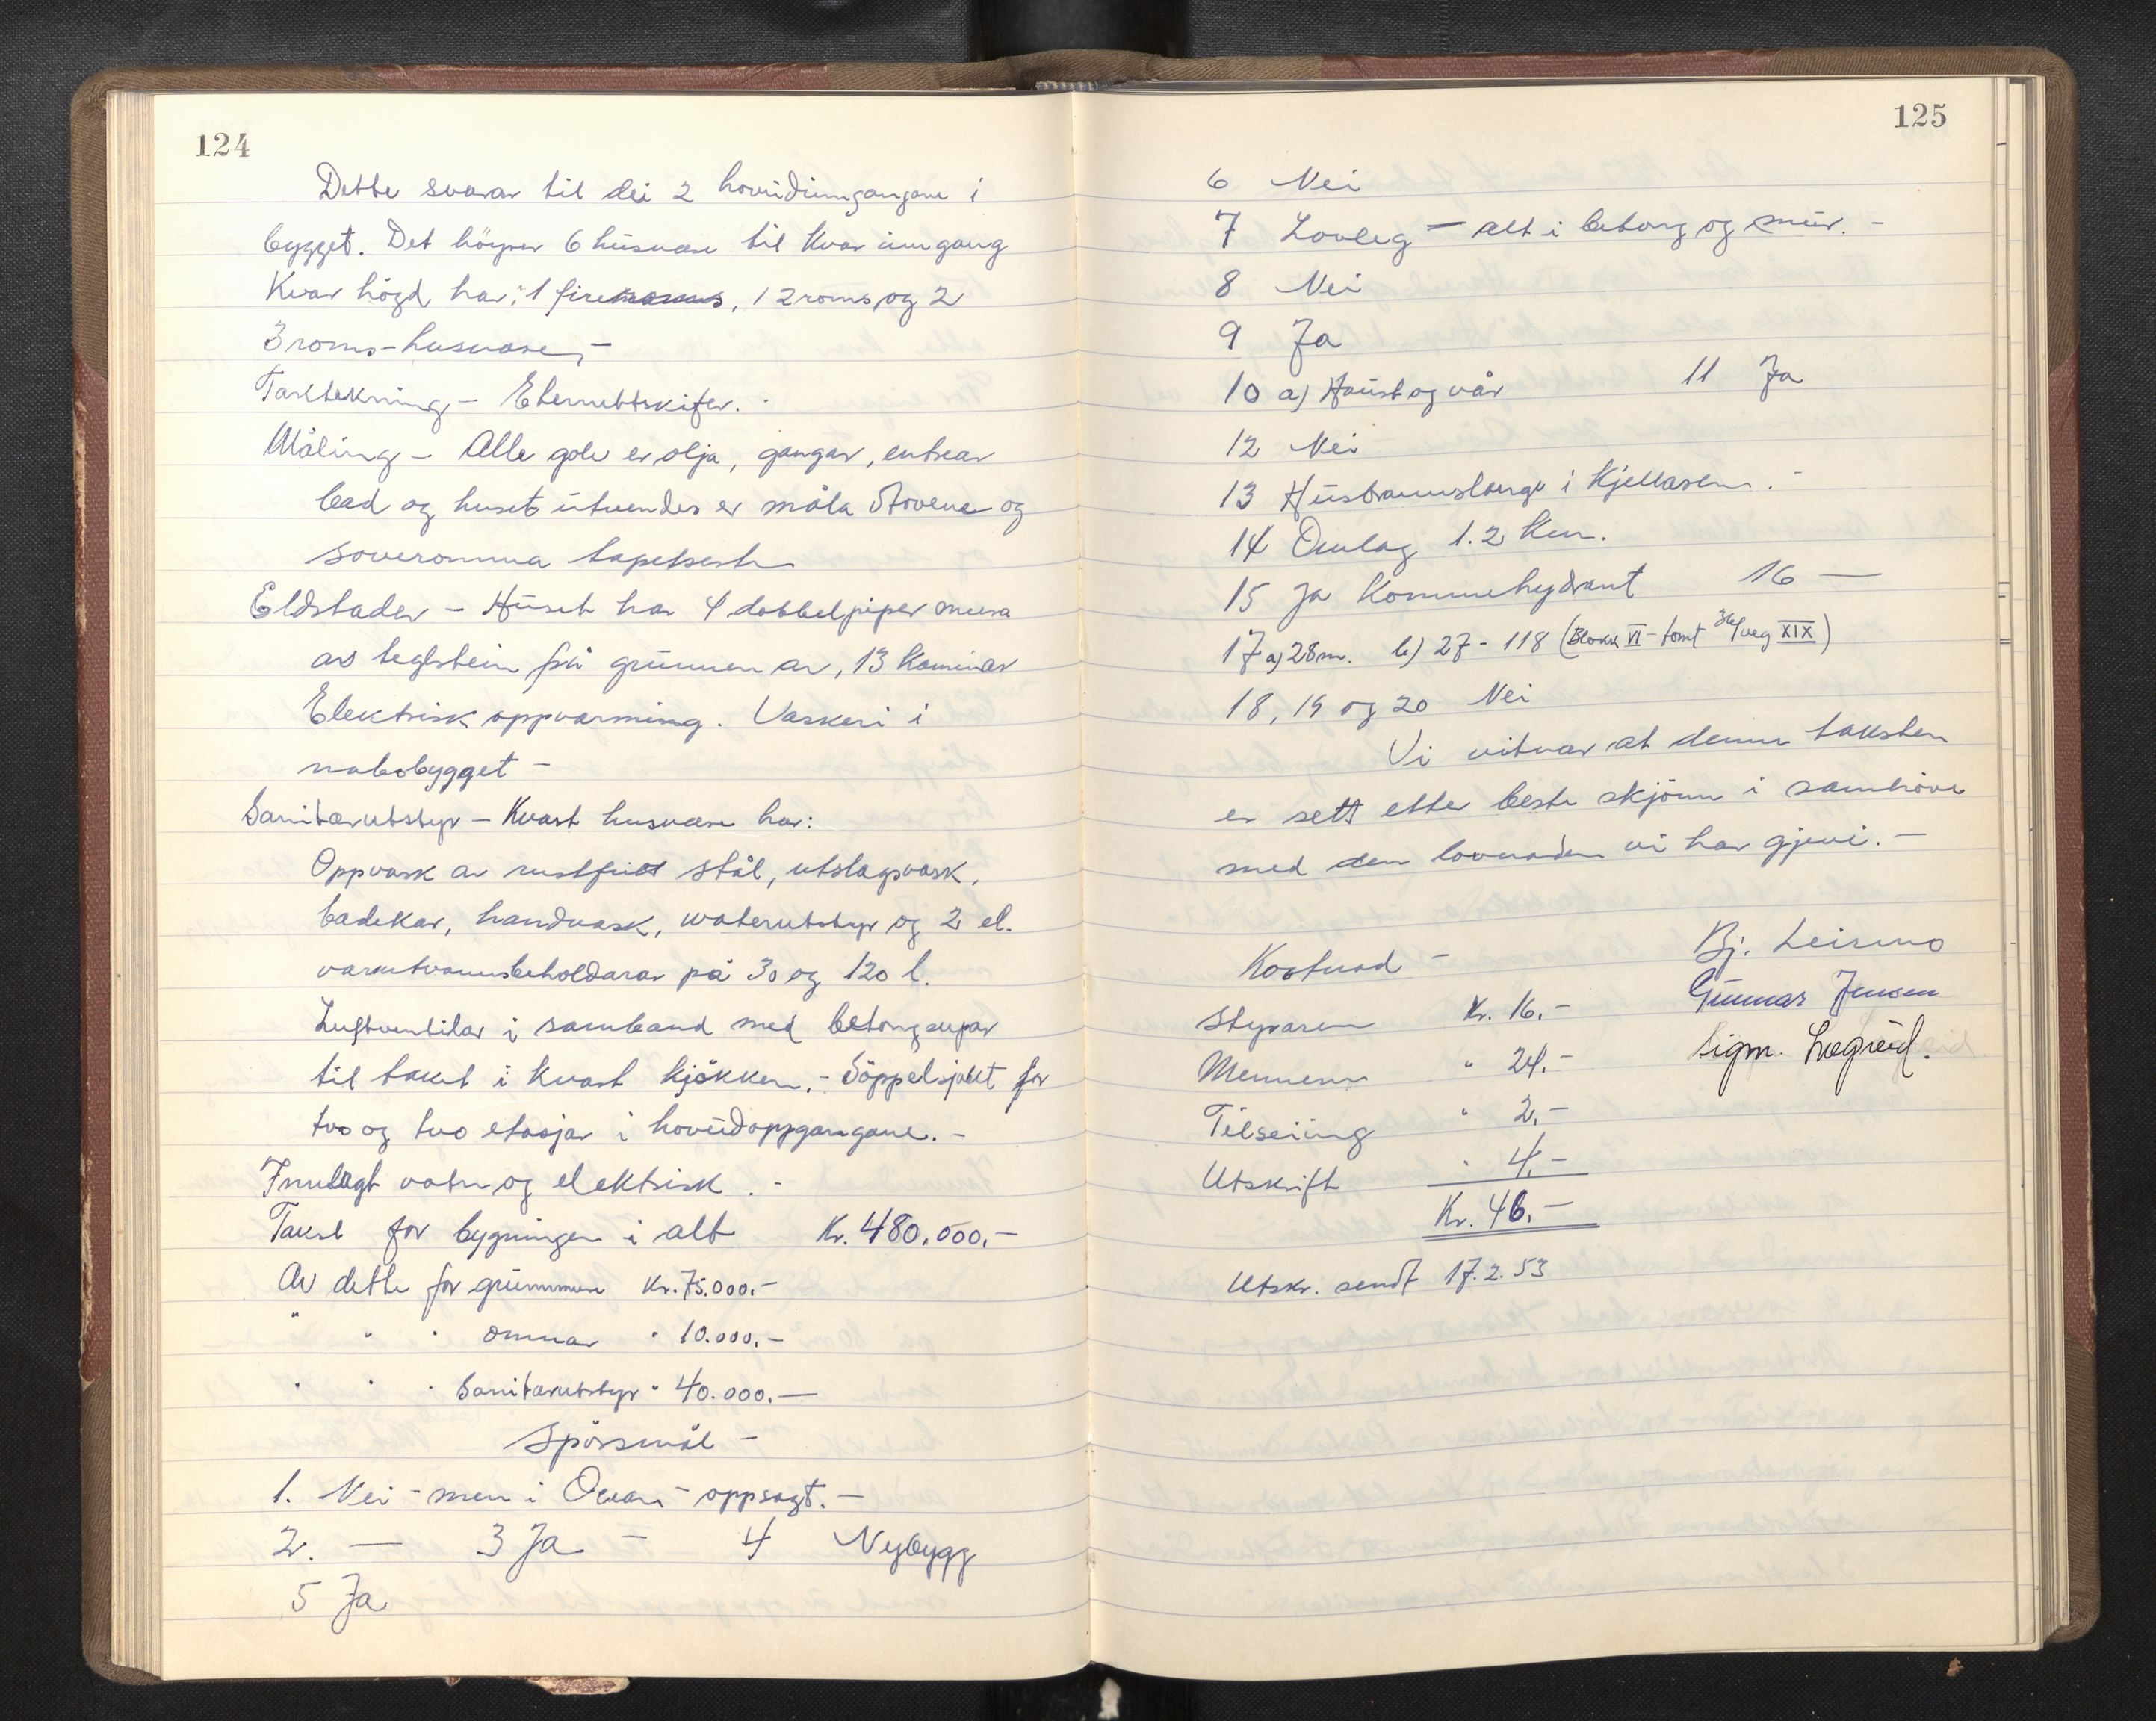 124
Dette svarar til dei 2 hovudinngangane i
bygget. Det höyrer 6 husvære til kvar inngang
Kvar högd har: 1 fireroms, 1 2roms og 2
3roms-husvære, -
Taktekning - Eternittskifer. -
Måling - Alle golv er olja, gangar, entrear
bad og huset utvendes er måla Stovene og
soveromma tapetsert
Eldstader - Huset har 4 dobbelpiper mura
av teglstein frå grunnen av, 13 kaminar
Elektrisk oppvarming. Vaskeri i
nabobygget -
Sanitærutstyr - Kvart husvære har:
Oppvask av rustfritt stål, utslagsvask,
badekar, handvask, waterutstyr og 2 el.
varmtvannsbeholdarar på 30 og 120 l.
Luftventilar i samband med betongpipar
til taket i kvart kjökken. - Söppelsjakt for
tvo og tvo etasjar i hovudoppgangane. -
Innlagt vatn og elektrisk. -
Takst for bygningen i alt Kr. 480.000.-
Av dette for grunnmur Kr. 75.000.-
" " " omnar " 10.000.-
" " " Sanitærutstyr " 40.000.-
Spörsmål -
1. Nei - men i - oppsagt. -
2. — 3 Ja - 4 Nybygg
5 Ja
125
6 Nei
7 Lovleg - alt i betong og mur. -
8 Nei
9 Ja
10 a) Haust og vår 11 Ja
12 Nei
13 Husbrannslange i Kjellaren. -
14 Omlag 1.2 km.
15 Ja Kommehydrant 16 —
17 a) 28m. b) 27-118 (Blokk VI - tomt 36/veg XIX)
18, 19 og 20 Nei
Vi vitnar at denne taksten
er sett etter beste skjönn i samhöve
med den lovnaden vi har gjevi. -
Kostnad -
Bj. Leirmo
Gunnar Jensen
Sigm. Lægreid.
Styraren Kr. 16.-
Mennene " 24.-
Tilseiing " 2.-
Utskrift " 4.-
Kr. 46.-
Utskr. sendt 17.2.53